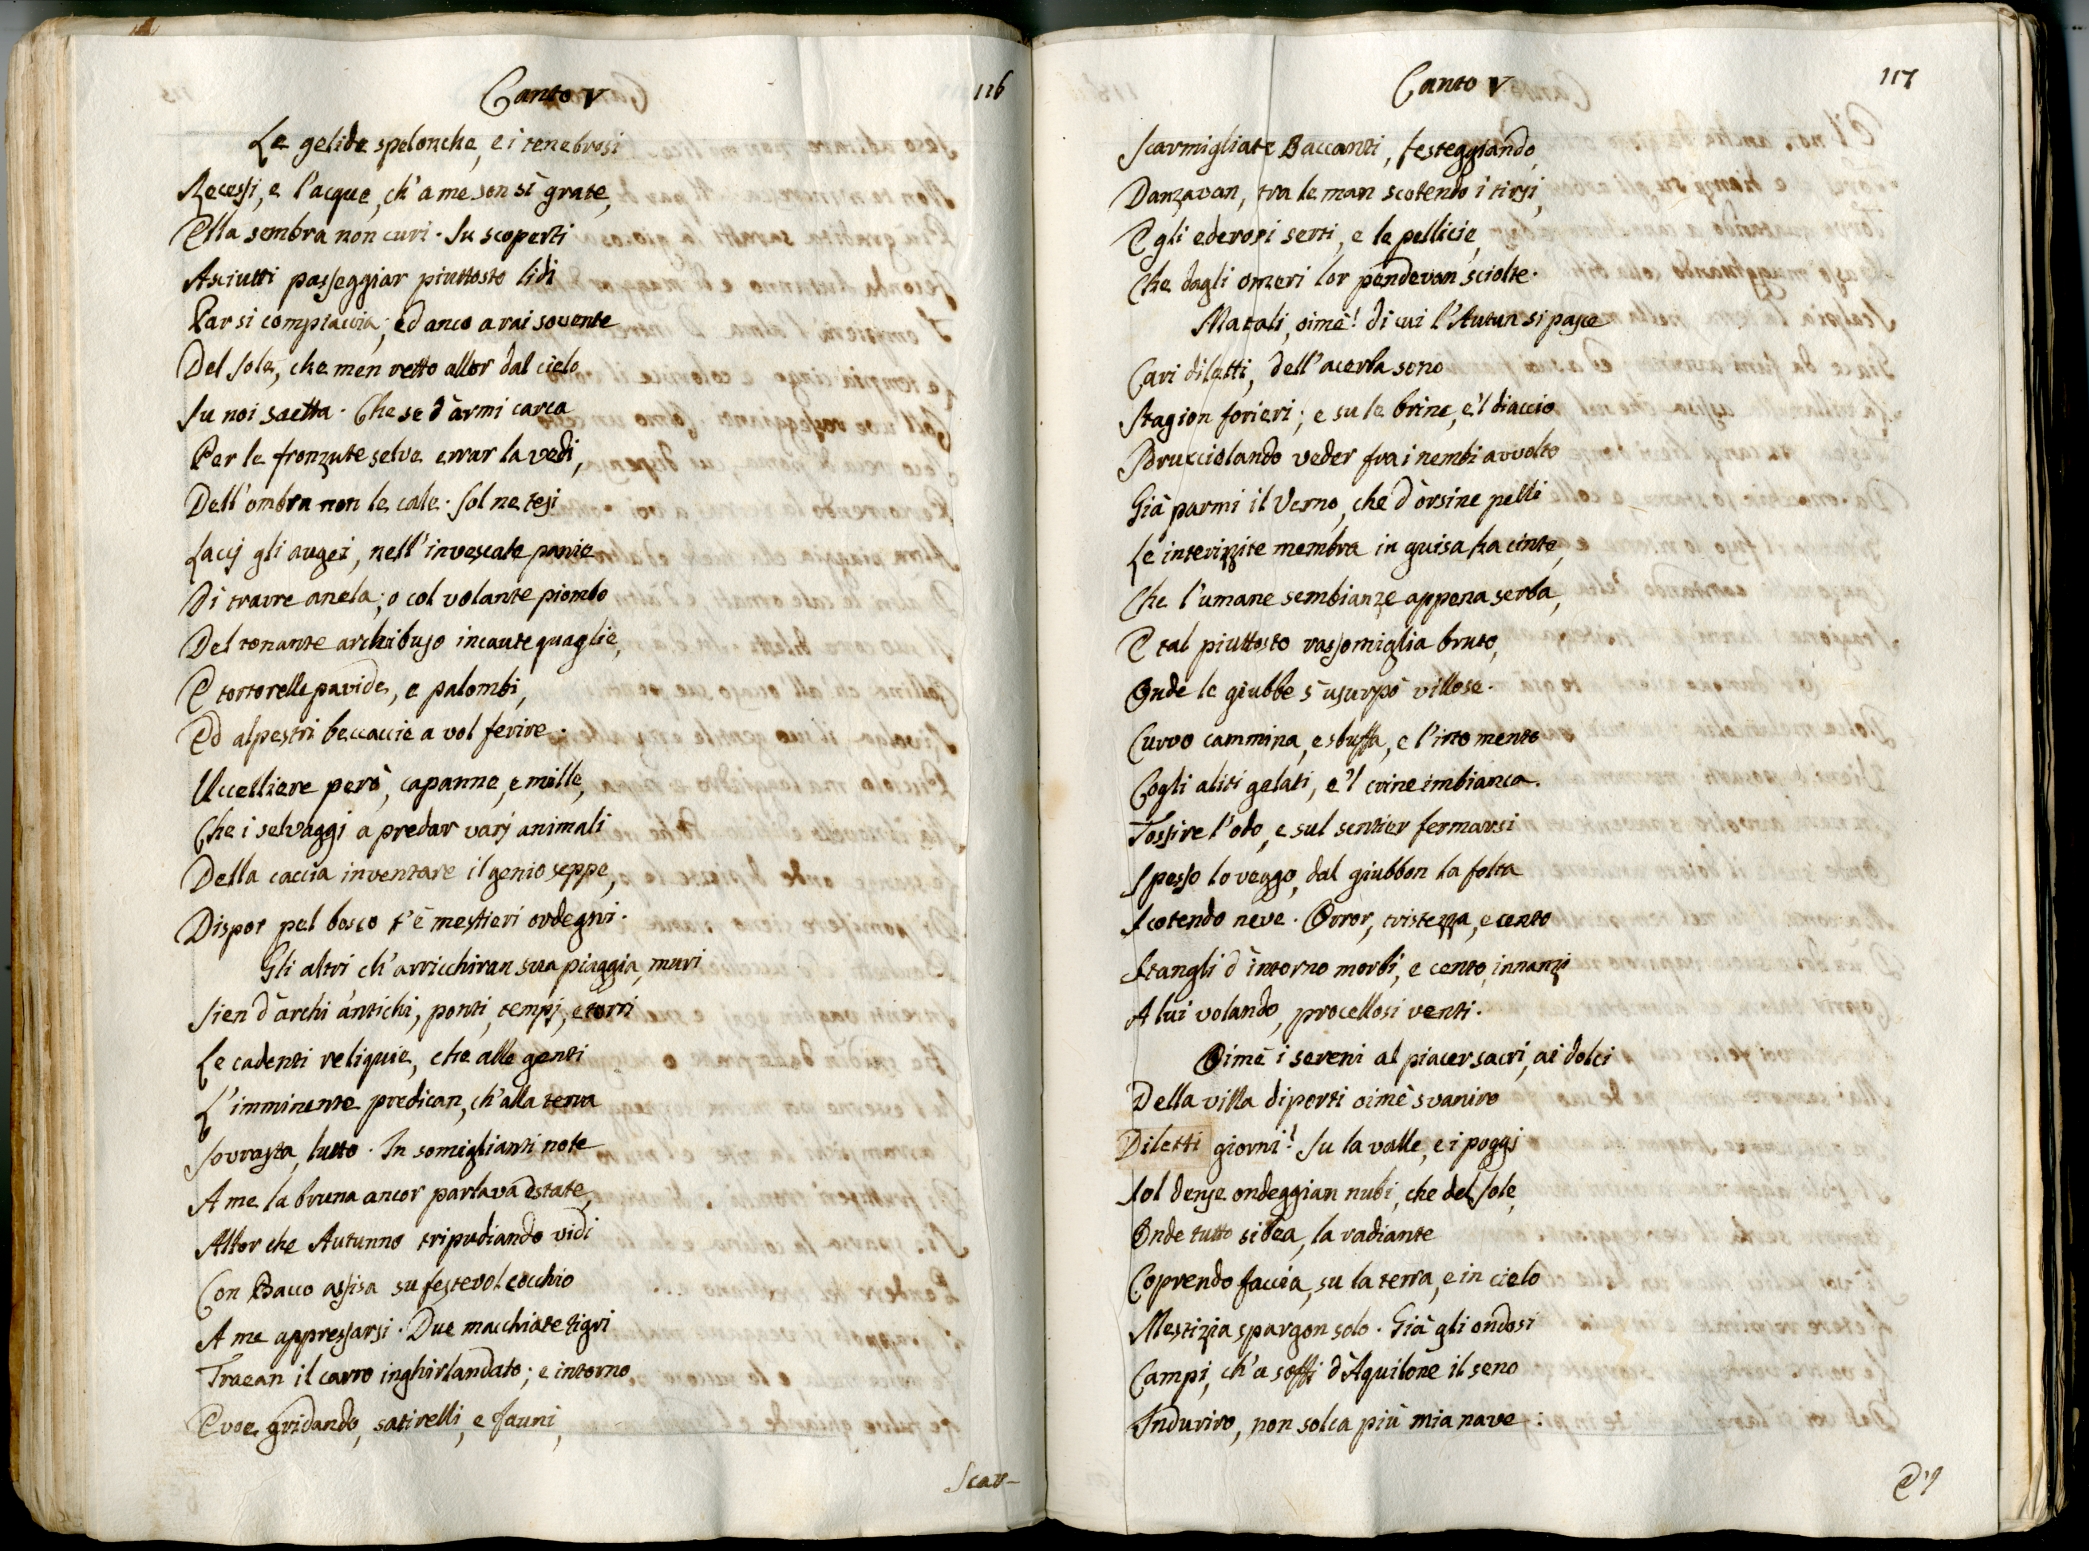 Canto V
116
Le gelide spelonche, e i tenebrosi
Recessi, e l'acque, ch'a me son sì grate,
Ella sembra non curi. Su scoperti
Asciutti passeggiar piuttosto lidi
Par si compiaccia; ed anco a rai sovente
Del Sole, che men retto allor dal cielo
Su noi saetta. Che se d'armi carca
Per le fronzute selve errar la vedi,
Dell'ombra non le cale. Sol ne tesi
Laccj gli augei, nell'invescate panie
Di trarre anela; o col volante piombo
Del tonante archibuso incaute quaglie,
E tortorelle pavide, e palombi,
Ed alpestri beccaccie a vol ferire.
Uccelliere però, capanne, e mille,
Che i selvaggi a predar varj animali
Della caccia inventare il genio seppe,
Dispor pel bosco t'è mestieri ordegni.
Gli altri ch'arricchiran sua piaggia, muri
Sien d'archi antichi, ponti, tempj, e torri
Le cadenti reliquie, che alle genti
L'imminente predican, ch'alla terra
Sovrasta, lutto. In somiglianti note
A me la bruna ancor parlava estate,
Allor che Autunno tripudiando vidi
Con Bacco assisa su festevol cocchio
A me appressarsi. Due macchiate tigri
Traean il carro inghirlandato; e intorno
Evoe gridando, satirelli, e fauni,
Scar-
Canto V
117
Scarmigliate Baccanti, festeggiando,
Danzavan, tra le man scotendo i tirsi,
E gli ederosi serti, e le pellicie,
Che dagli omeri lor pendevan sciolte.
Ma tali, oimè! di cui l'Autun si pasce
Cari diletti, dell'acerba sono
Stagion forieri; e su le brine, e'l diaccio
Sdrucciolando veder fra i nembi avvolto
Già parmi il Verno, che d'orsine pelli
Le interizzite membra in guisa ha cinte,
Che l'umane sembianze appena serba,
E tal piuttosto rassomiglia bruto,
Onde le giubbe s'usurpò villose.
Curvo cammina, e sbuffa, e l'irto mento
Cogli aliti gelati, e'l crine imbianca.
Tossire l'odo, e sul sentier fermarsi
Spesso lo veggo, dal giubbon la folta
Scotendo neve. Orror, tristezza, e cento
Stangli d'intorno morbi, e cento, innanzi
A lui volando, procellosi venti.
Oimè i sereni al piacer sacri, ai dolci
Della villa diporti oimè svaniro
Diletti giorni! Su la valle, e i poggj
Sol dense ondeggian nubi, che del Sole,
Onde tutto si bea, la radiante
Coprendo faccia, su la terra, e in cielo
Mestizia spargon solo. Già gli ondosi
Campi, ch'a soffi d'Aquilone il seno
Induriro, non solca più mia nave:
E'l